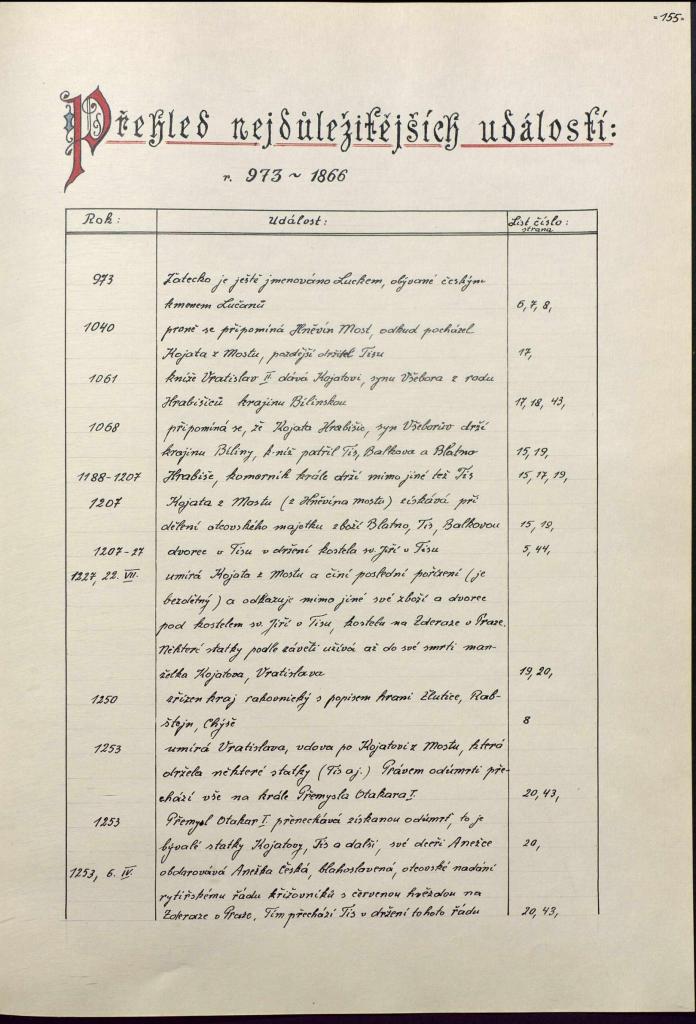 - 155 -
Přehled nejdůležitějších událostí:
r. 973 ~ 1866
Rok: Událost: List číslo:
strana
973 Žatecko je ještě jmenováno Luckem, obývané českým
kmenem Lučanů 6, 7, 8,
1040 prvně se připomíná Hněvín Most, odkud pocházel
Kojata z Mostu, pozdější držitel Tisu 17,
1061 kníže Vratislav II. dává Kojatovi, synu Všebora z rodu
Hrabišiců krajinu Bílinskou 17, 18, 43,
1068 připomíná se, že Kojata Hrabišic, syn Všeborův drží
krajinu Bíliny, k níž patřil Tis, Balkova a Blatno 15, 19,
1188-1207 Hrabiše, komorník krále drží mimo jiné též Tis 15, 17, 19,
1207 Kojata z Mostu (z Hněvína mostu) získává při
dělení otcovského majetku zboží Blatno, Tis, Balkovou 15, 19,
1207-27 dvorec v Tisu v držení kostela sv. Jiří v Tisu 5, 44,
1227, 22. VII. umírá Kojata z Mostu a činí poslední pořízení (je
bezdětný) a odkazuje mimo jiné své zboží a dvorec
pod kostelem sv. Jiří v Tisu, kostelu na Zderaze v Praze.
Některé statky podle závěti užívá až do své smrti man-
želka Kojatova, Vratislava 19, 20,
1250 zřízen kraj rakovnický s popisem hranic Žlutice, Rab-
štejn, Chýše 8
1253 umírá Vratislava, vdova po Kojatovi z Mostu, která
držela některé statky (Tis aj.) Právem odúmrti pře-
chází vše na krále Přemysla Otakara I. 20, 43,
1253 Přemysl Otakar I. přenechává získanou odúmrť, to je
bývalé statky Kojatovy, Tis a další, své dceři Anežce 20,
1253, 6. IV. obdarovává Anežka Česká, blahoslavená, otcovské nadání
rytířskému řádu křižovníků s červenou hvězdou na
Zderaze v Praze, Tím přechází Tis v držení tohoto řádu 20, 43,